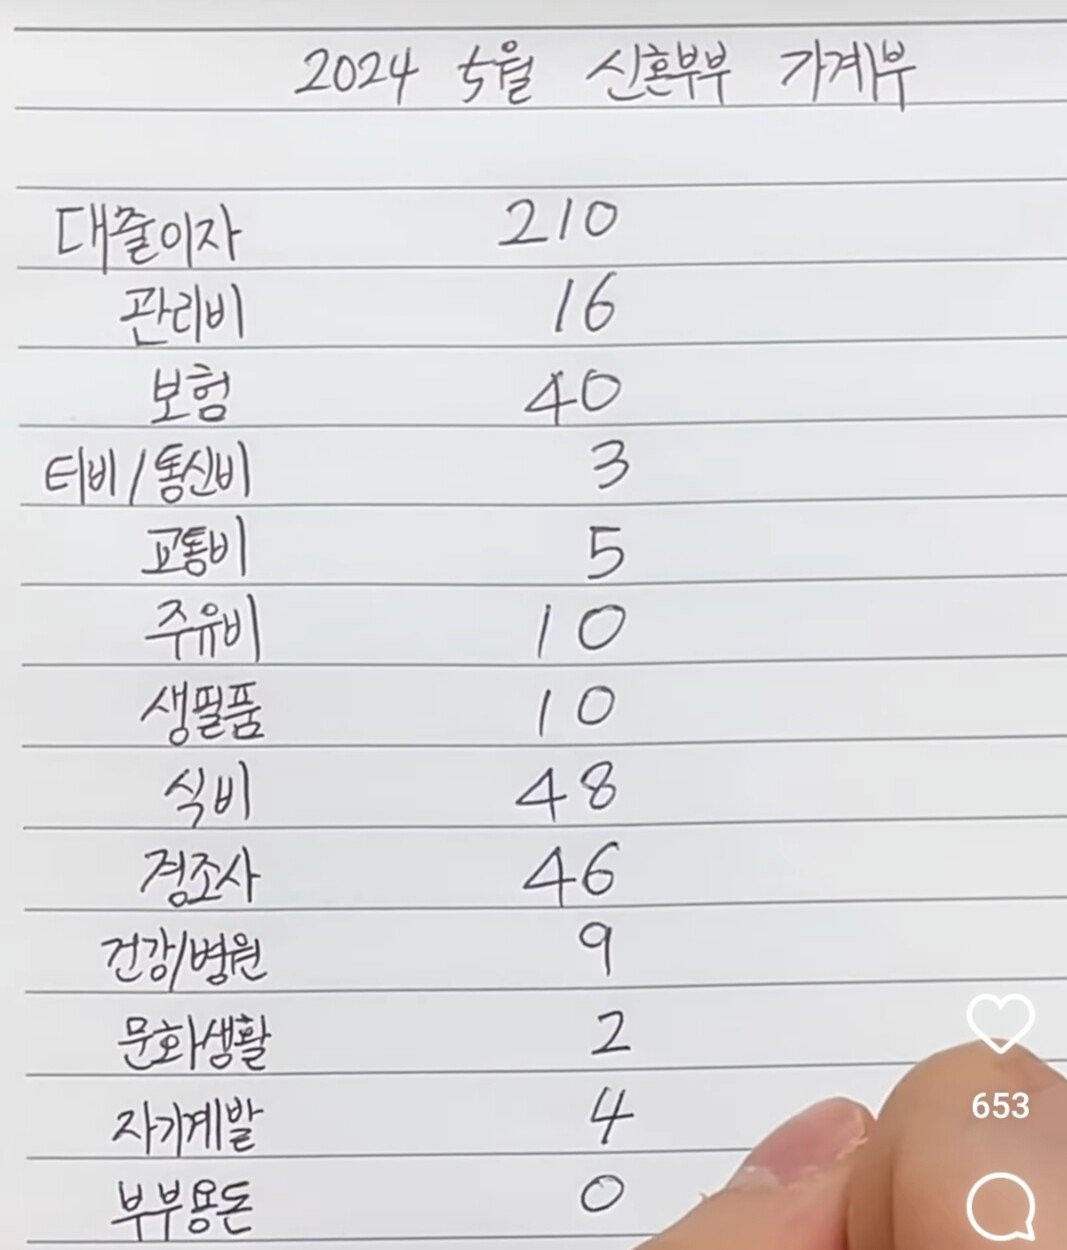 2024 5월 신혼부부 가계부
대출이자 210
관리비 16
보험 40
티비/통신비 3
교통비 5
주유비 10
생필품 10
식비 48
경조사 46
건강/병원 9
문화생활 2
자기계발 4
부부용돈 0
653